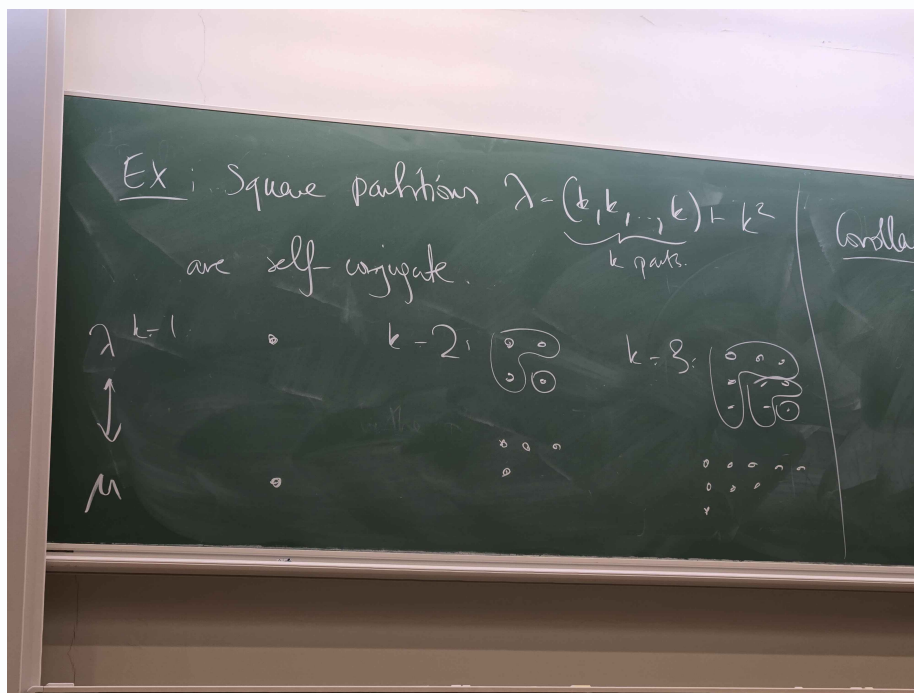 Ex: Square partitions λ = (k, k, ..., k) ⊢ k²
k parts.
are self-conjugate.
Corolla
λ k=1 k=2: k=3:
μ